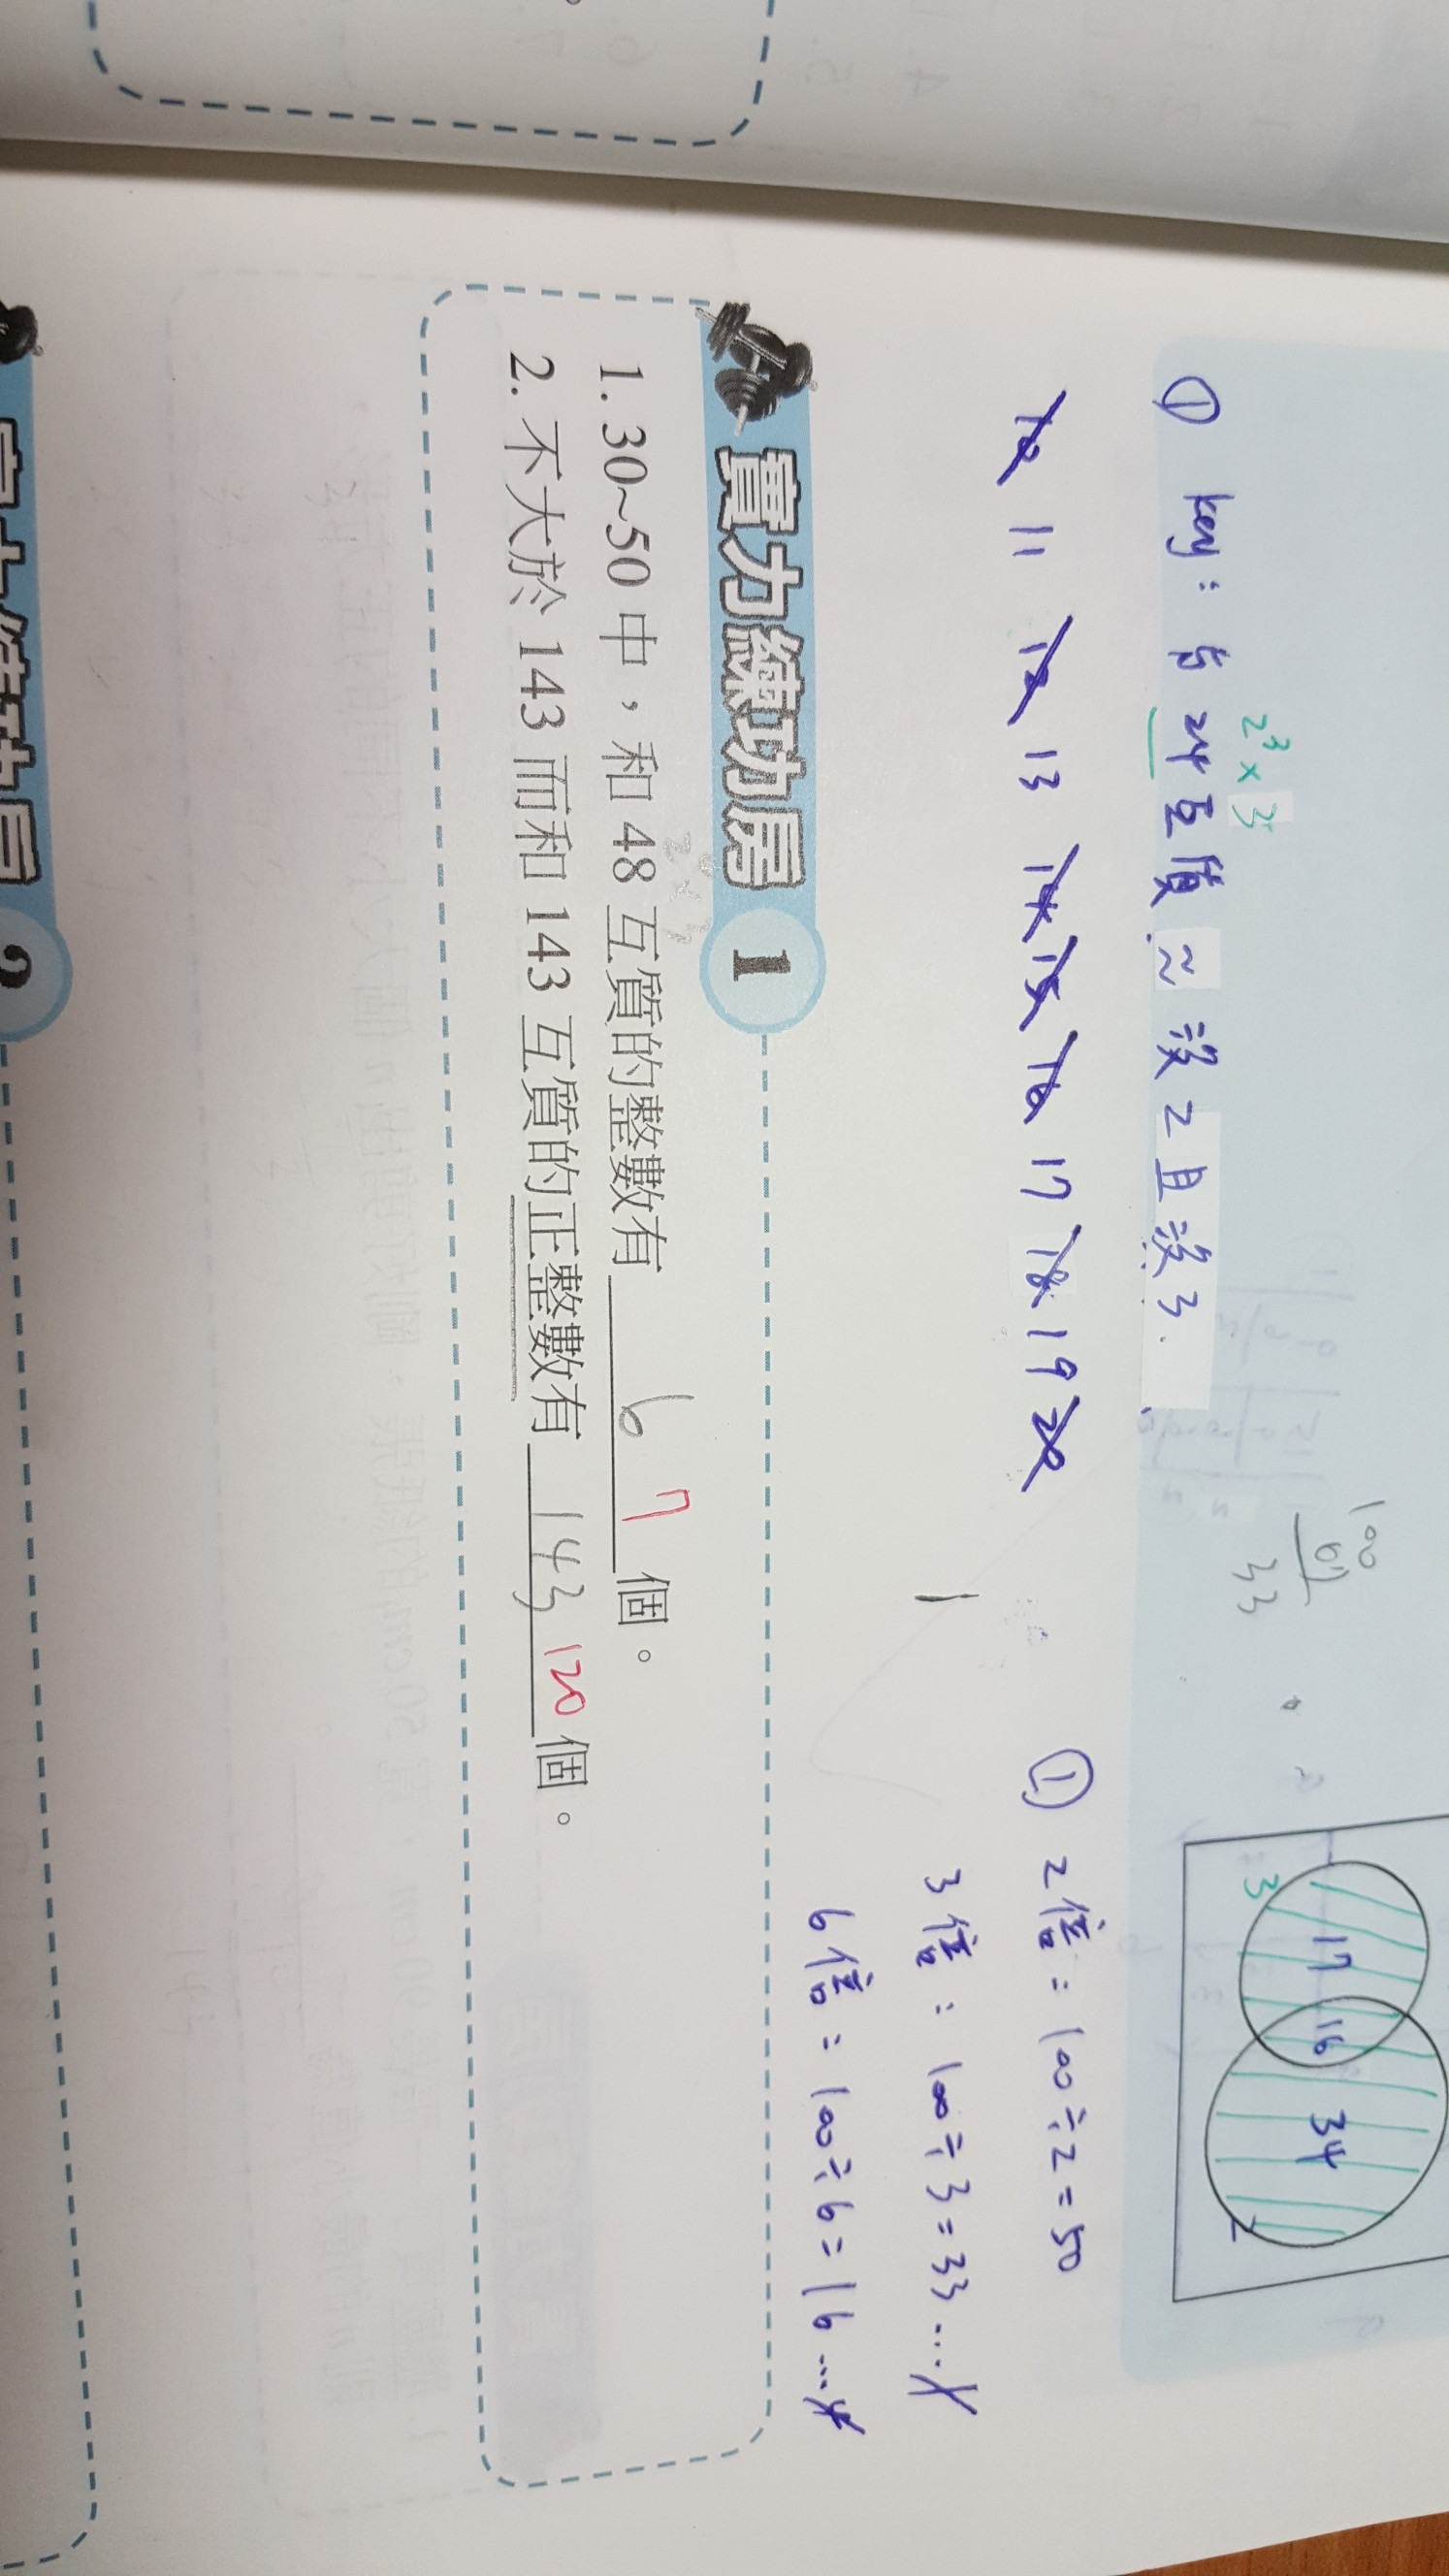 ① key：与 24 互質 ≈ 沒 2 且 沒 3.
2³×3
10 11 12 13 14 15 16 17 18 19 20
100
67
33
3 17 16 34 2
① 2倍：100÷2=50
3倍：100÷3=33…1
6倍：100÷6=16…4
實力練功房 1
1. 30~50 中，和 48 互質的整數有 6 7 個。
2. 不大於 143 而和 143 互質的正整數有 143 120 個。